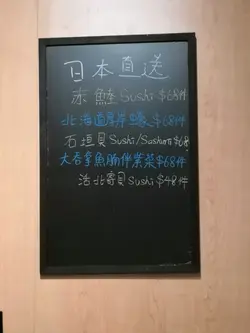 日本直送
赤鯥Sushi $68/件
北海道厚岸蠔 $68/件
石垣貝Sushi/Sashimi $68
大吞拿魚腩 紫菜 $68/件
活北寄貝Sushi $48/件